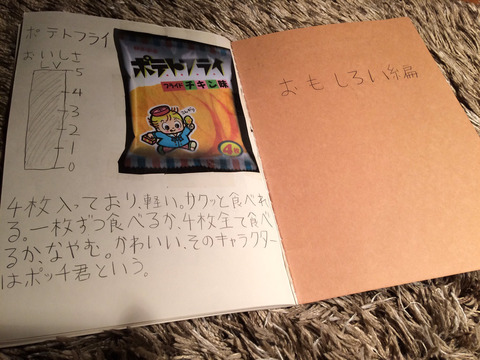 ポテトフライ
おいしさ
LV
5
4
3
2
1
0
ポテトフライ
フライド チキン味
4枚
4枚入っており、軽い。サクッと食べれ
る。一枚ずつ食べるか、4枚全て食べ
るか、なやむ。かわいい、そのキャラクター
はポッチ君という。
おもしろい編